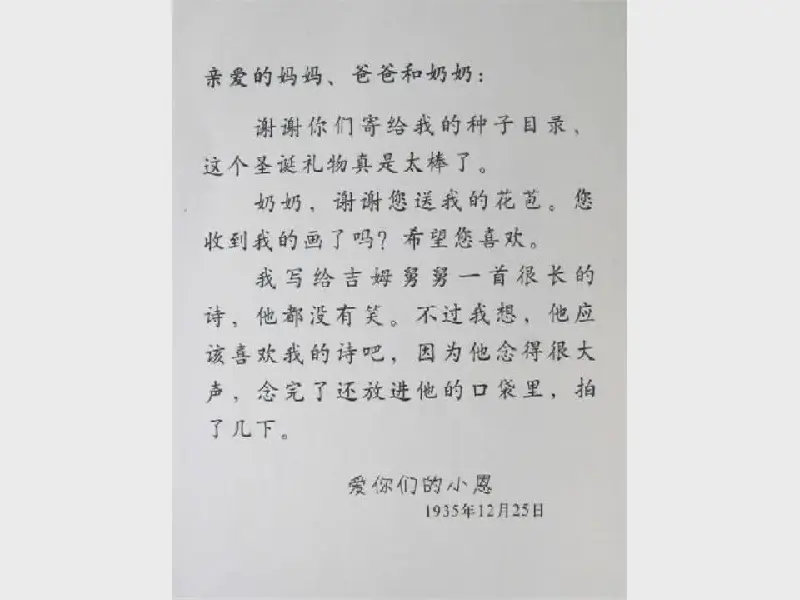 亲爱的妈妈、爸爸和奶奶：
谢谢你们寄给我的种子目录，
这个圣诞礼物真是太棒了。
奶奶，谢谢您送我的花苞。您
收到我的画了吗？希望您喜欢。
我写给吉姆舅舅一首很长的
诗，他都没有笑。不过我想，他应
该喜欢我的诗吧，因为他念得很大
声，念完了还放进他的口袋里，拍
了几下。
爱你们的小恩
1935年12月25日